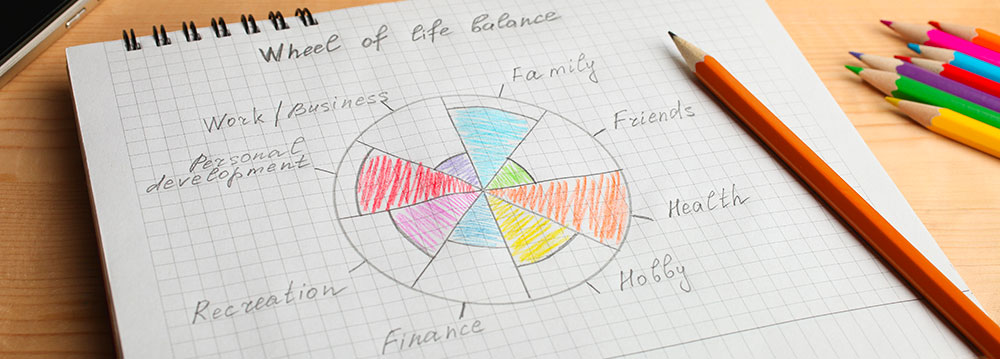 Wheel of life balance
Family
Work/Business
Friends
Personal
development
Health
Hobby
Recreation
Finance